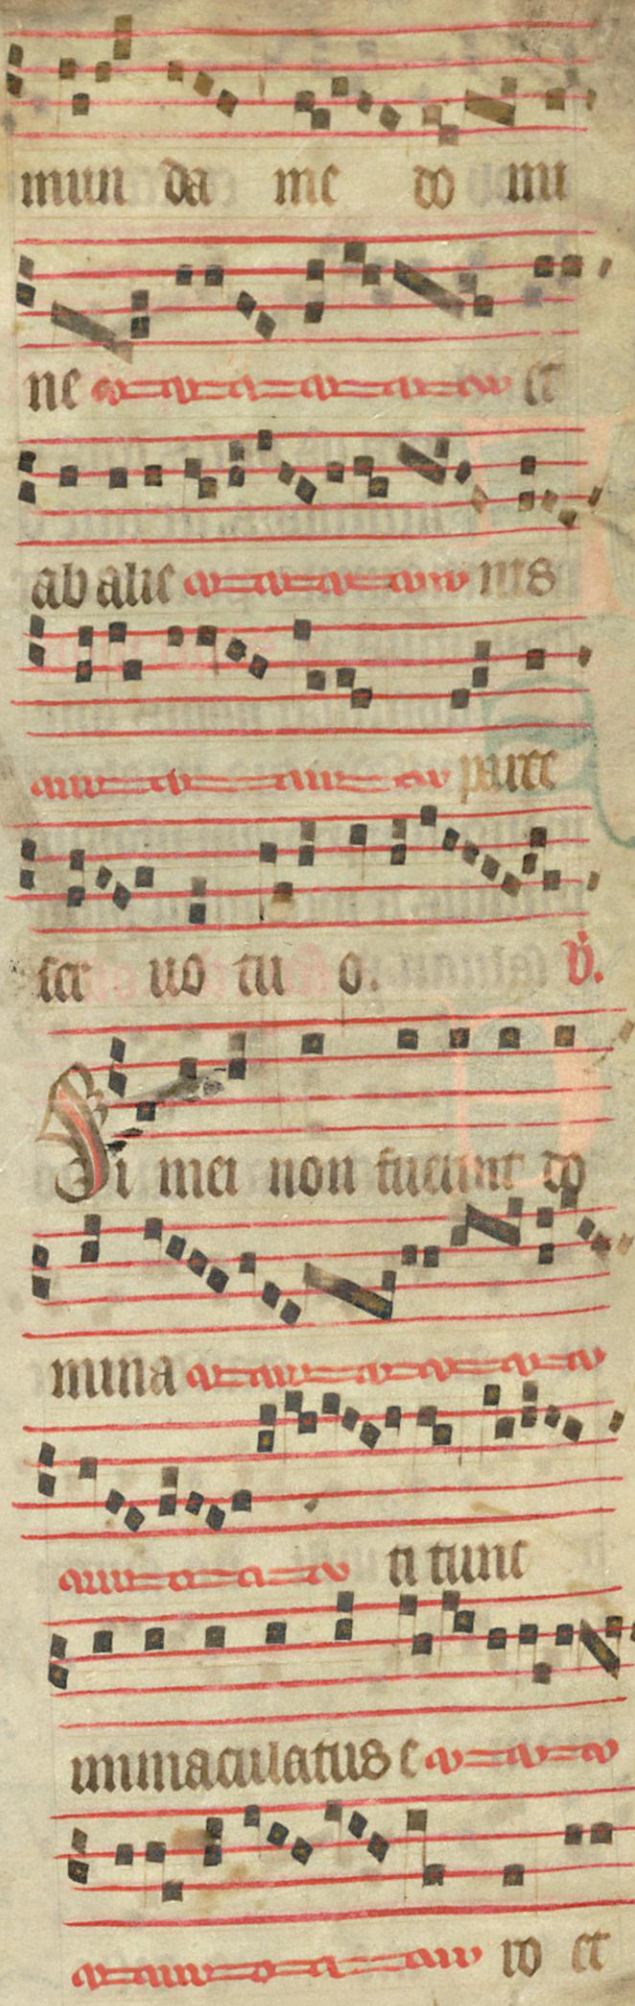 mun da me do mi
ne et
ab alie nis
parce
ser uo tu o. ℣.
Si mei non fuerint do
mina
ti tunc
immaculatus e
ro et